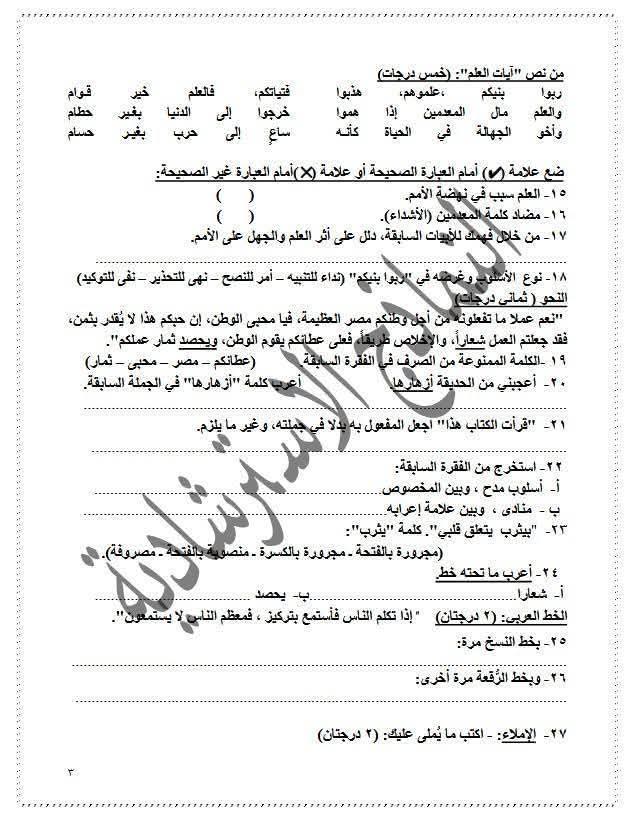 من نص "آيات العلم": (خمس درجات)
ربوا بنيكم ،علموهم، هذبوا فتياتكم، فالعلم خير قوام
والعلم مال المعدمين إذا هموا خرجوا إلى الدنيا بغير حطام
وأخو الجهالة في الحياة كأنه ساعٍ إلى حرب بغير حسام
ضع علامة (✔) أمام العبارة الصحيحة أو علامة (✗)أمام العبارة غير الصحيحة:
١٥- العلم سبب في نهضة الأمم. ( )
١٦- مضاد كلمة المعدمين (الأشداء). ( )
١٧- من خلال فهمك للأبيات السابقة، دلل على أثر العلم والجهل على الأمم.
١٨- نوع الأسلوب وغرضه في "ربوا بنيكم" (نداء للتنبيه – أمر للنصح – نهى للتحذير – نفى للتوكيد)
النحو ( ثماني درجات)
"نعم عملا ما تفعلونه من أجل وطنكم مصر العظيمة، فيا محبى الوطن، إن حبكم هذا لا يُقدر بثمن،
فقد جعلتم العمل شعاراً، والإخلاص طريقاً، فعلى عطائكم يقوم الوطن، ويحصد ثمار عملكم".
١٩ -الكلمة الممنوعة من الصرف في الفقرة السابقة. (عطائكم – مصر – محبى – ثمار)
٢٠- أعجبني من الحديقة أزهارها. أعرب كلمة "أزهارها" في الجملة السابقة.
٢١- "قرأت الكتاب هذا" اجعل المفعول به بدلا في جملته، وغير ما يلزم.
٢٢- استخرج من الفقرة السابقة:
أ- أسلوب مدح ، وبين المخصوص
ب - منادى ، وبين علامة إعرابه
٢٣- "بيثرب يتعلق قلبي". كلمة "يثرب":
(مجرورة بالفتحة ـ مجرورة بالكسرة ـ منصوبة بالفتحة ـ مصروفة).
٢٤- أعرب ما تحته خط.
أ- شعارا ب- يحصد
الخط العربى: (٢ درجتان) " إذا تكلم الناس فأستمع بتركيز ، فمعظم الناس لا يستمعون".
٢٥- بخط النسخ مرة:
٢٦- وبخط الرُّقعة مرة أخرى:
٢٧- الإملاء: - اكتب ما يُملى عليك: (٢ درجتان)
٣
النماذج الاسترشادية